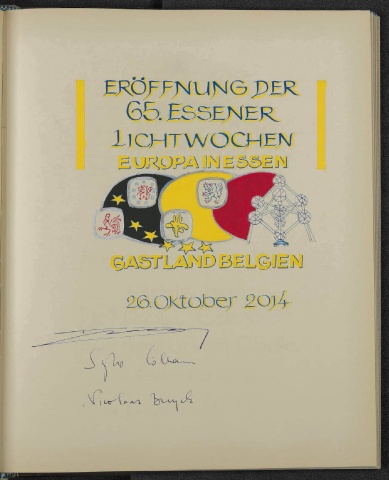 ERÖFFNUNG DER
65. ESSENER
LICHTWOCHEN
EUROPA IN ESSEN
GASTLAND BELGIEN
26. Oktober 2014
Nicolaas